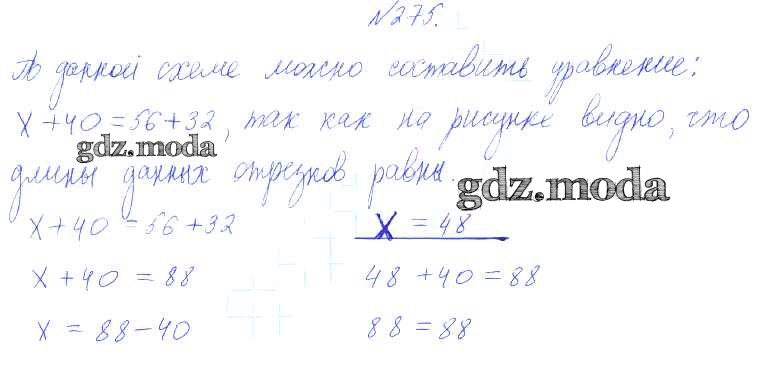 №275.
По данной схеме можно составить уравнение:
x+40=56+32, так как на рисунке видно, что
gdz.moda
длины данных отрезков равны.
gdz.moda
x+40=56+32
x+40=88
x=88-40
x=48
48+40=88
88=88